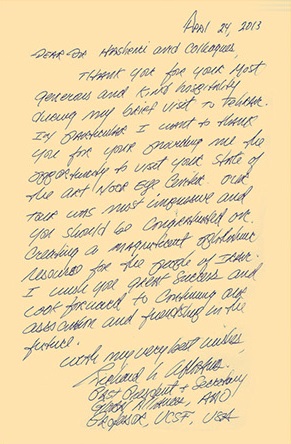 April 24, 2013
Dear Dr Hashemi and Colleagues,
Thank you for your most
generous and kind hospitality
during my brief visit to Tehran.
In particular I want to thank
you for your providing me the
opportunity to visit your state of
the art Noor Eye Center. Our
tour was most impressive and
you should be congratulated on
creating a magnificent ophthalmic
resource for the people of Iran.
I wish you great success and
look forward to continuing our
association and friendship in the
future.
With my very best wishes,
Richard L. Abbott
Past President + Secretary
Global Alliances, AAO
Professor, UCSF, USA